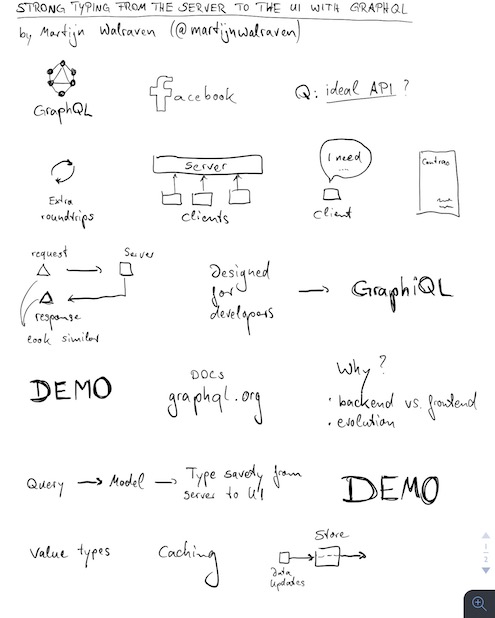 STRONG TYPING FROM THE SERVER TO THE UI WITH GRAPHQL
by Martijn Walraven (@martijnwalraven)
GraphQL
facebook
Q: ideal API?
Extra
roundtrips
Server
clients
I need
...
client
Contrac
request
Server
response
look similar
Designed
for
developers
GraphiQL
DEMO
DOCS
graphql.org
Why?
• backend vs. frontend
• evolution
Query → Model → Type savety from
server to UI
DEMO
Value types
Caching
Store
Data
updates
1
2